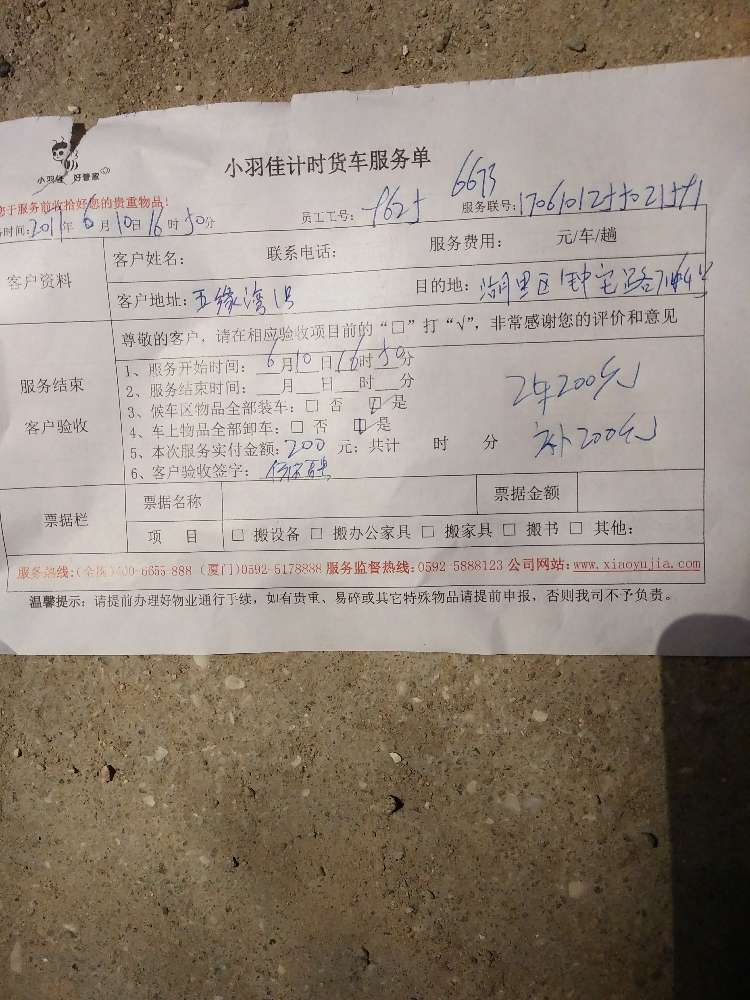 小羽佳 好管家
小羽佳计时货车服务单
于服务前收拾好您的贵重物品!
员工工号: 9625 6673
服务联号:
时间:2017年6月10日16时50分
客户资料
客户姓名: 联系电话: 服务费用: 元/车/趟
客户地址:五缘湾1号 目的地:湖里区钟宅路
尊敬的客户，请在相应验收项目前的“□”打“√”，非常感谢您的评价和意见
服务结束
客户验收
1、服务开始时间: 6月10日16时50分
2、服务结束时间: 月 日 时 分
3、候车区物品全部装车: □ 否 ☑ 是
4、车上物品全部卸车: □ 否 ☑ 是
5、本次服务实付金额:200 元; 共计 时 分
6、客户验收签字:
200元
补200元
票据栏
票据名称 票据金额
项 目 □ 搬设备 □ 搬办公家具 □ 搬家具 □ 搬书 □ 其他:
服务热线:(全国)400-6655-888 (厦门)0592-5178888 服务监督热线:0592-5888123 公司网站:www.xiaoyujia.com
温馨提示: 请提前办理好物业通行手续，如有贵重、易碎或其它特殊物品请提前申报，否则我司不予负责。